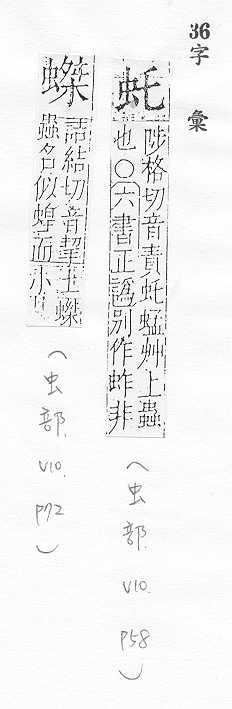 36
字彙
虴
陟格切音責虴蜢艸上蟲
也○六書正譌別作蚱非
(虫部. V10. P58)
蟍
詰結切音挈土蟍
蟲名似蝗而小
(虫部. V10. P72)